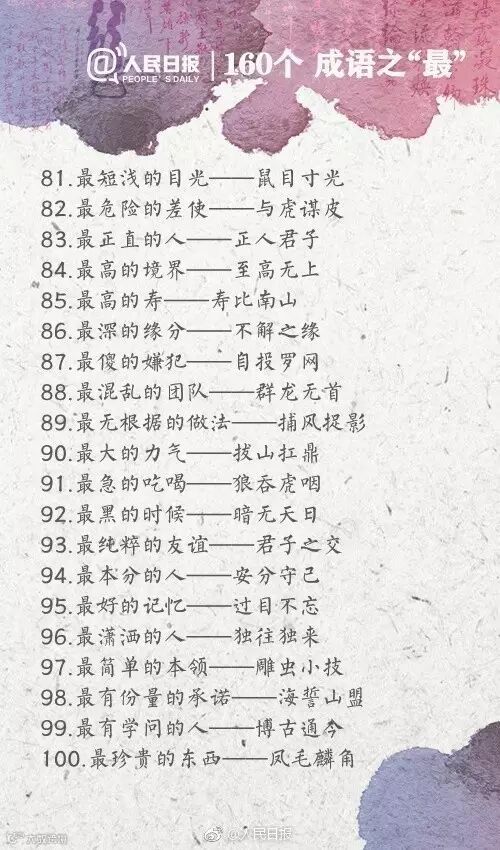 @人民日报 PEOPLE'S DAILY | 160个 成语之“最”
81.最短浅的目光——鼠目寸光
82.最危险的差使——与虎谋皮
83.最正直的人——正人君子
84.最高的境界——至高无上
85.最高的寿——寿比南山
86.最深的缘分——不解之缘
87.最傻的嫌犯——自投罗网
88.最混乱的团队——群龙无首
89.最无根据的做法——捕风捉影
90.最大的力气——拔山扛鼎
91.最急的吃喝——狼吞虎咽
92.最黑的时候——暗无天日
93.最纯粹的友谊——君子之交
94.最本分的人——安分守己
95.最好的记忆——过目不忘
96.最潇洒的人——独往独来
97.最简单的本领——雕虫小技
98.最有份量的承诺——海誓山盟
99.最有学问的人——博古通今
100.最珍贵的东西——凤毛麟角
@人民日报